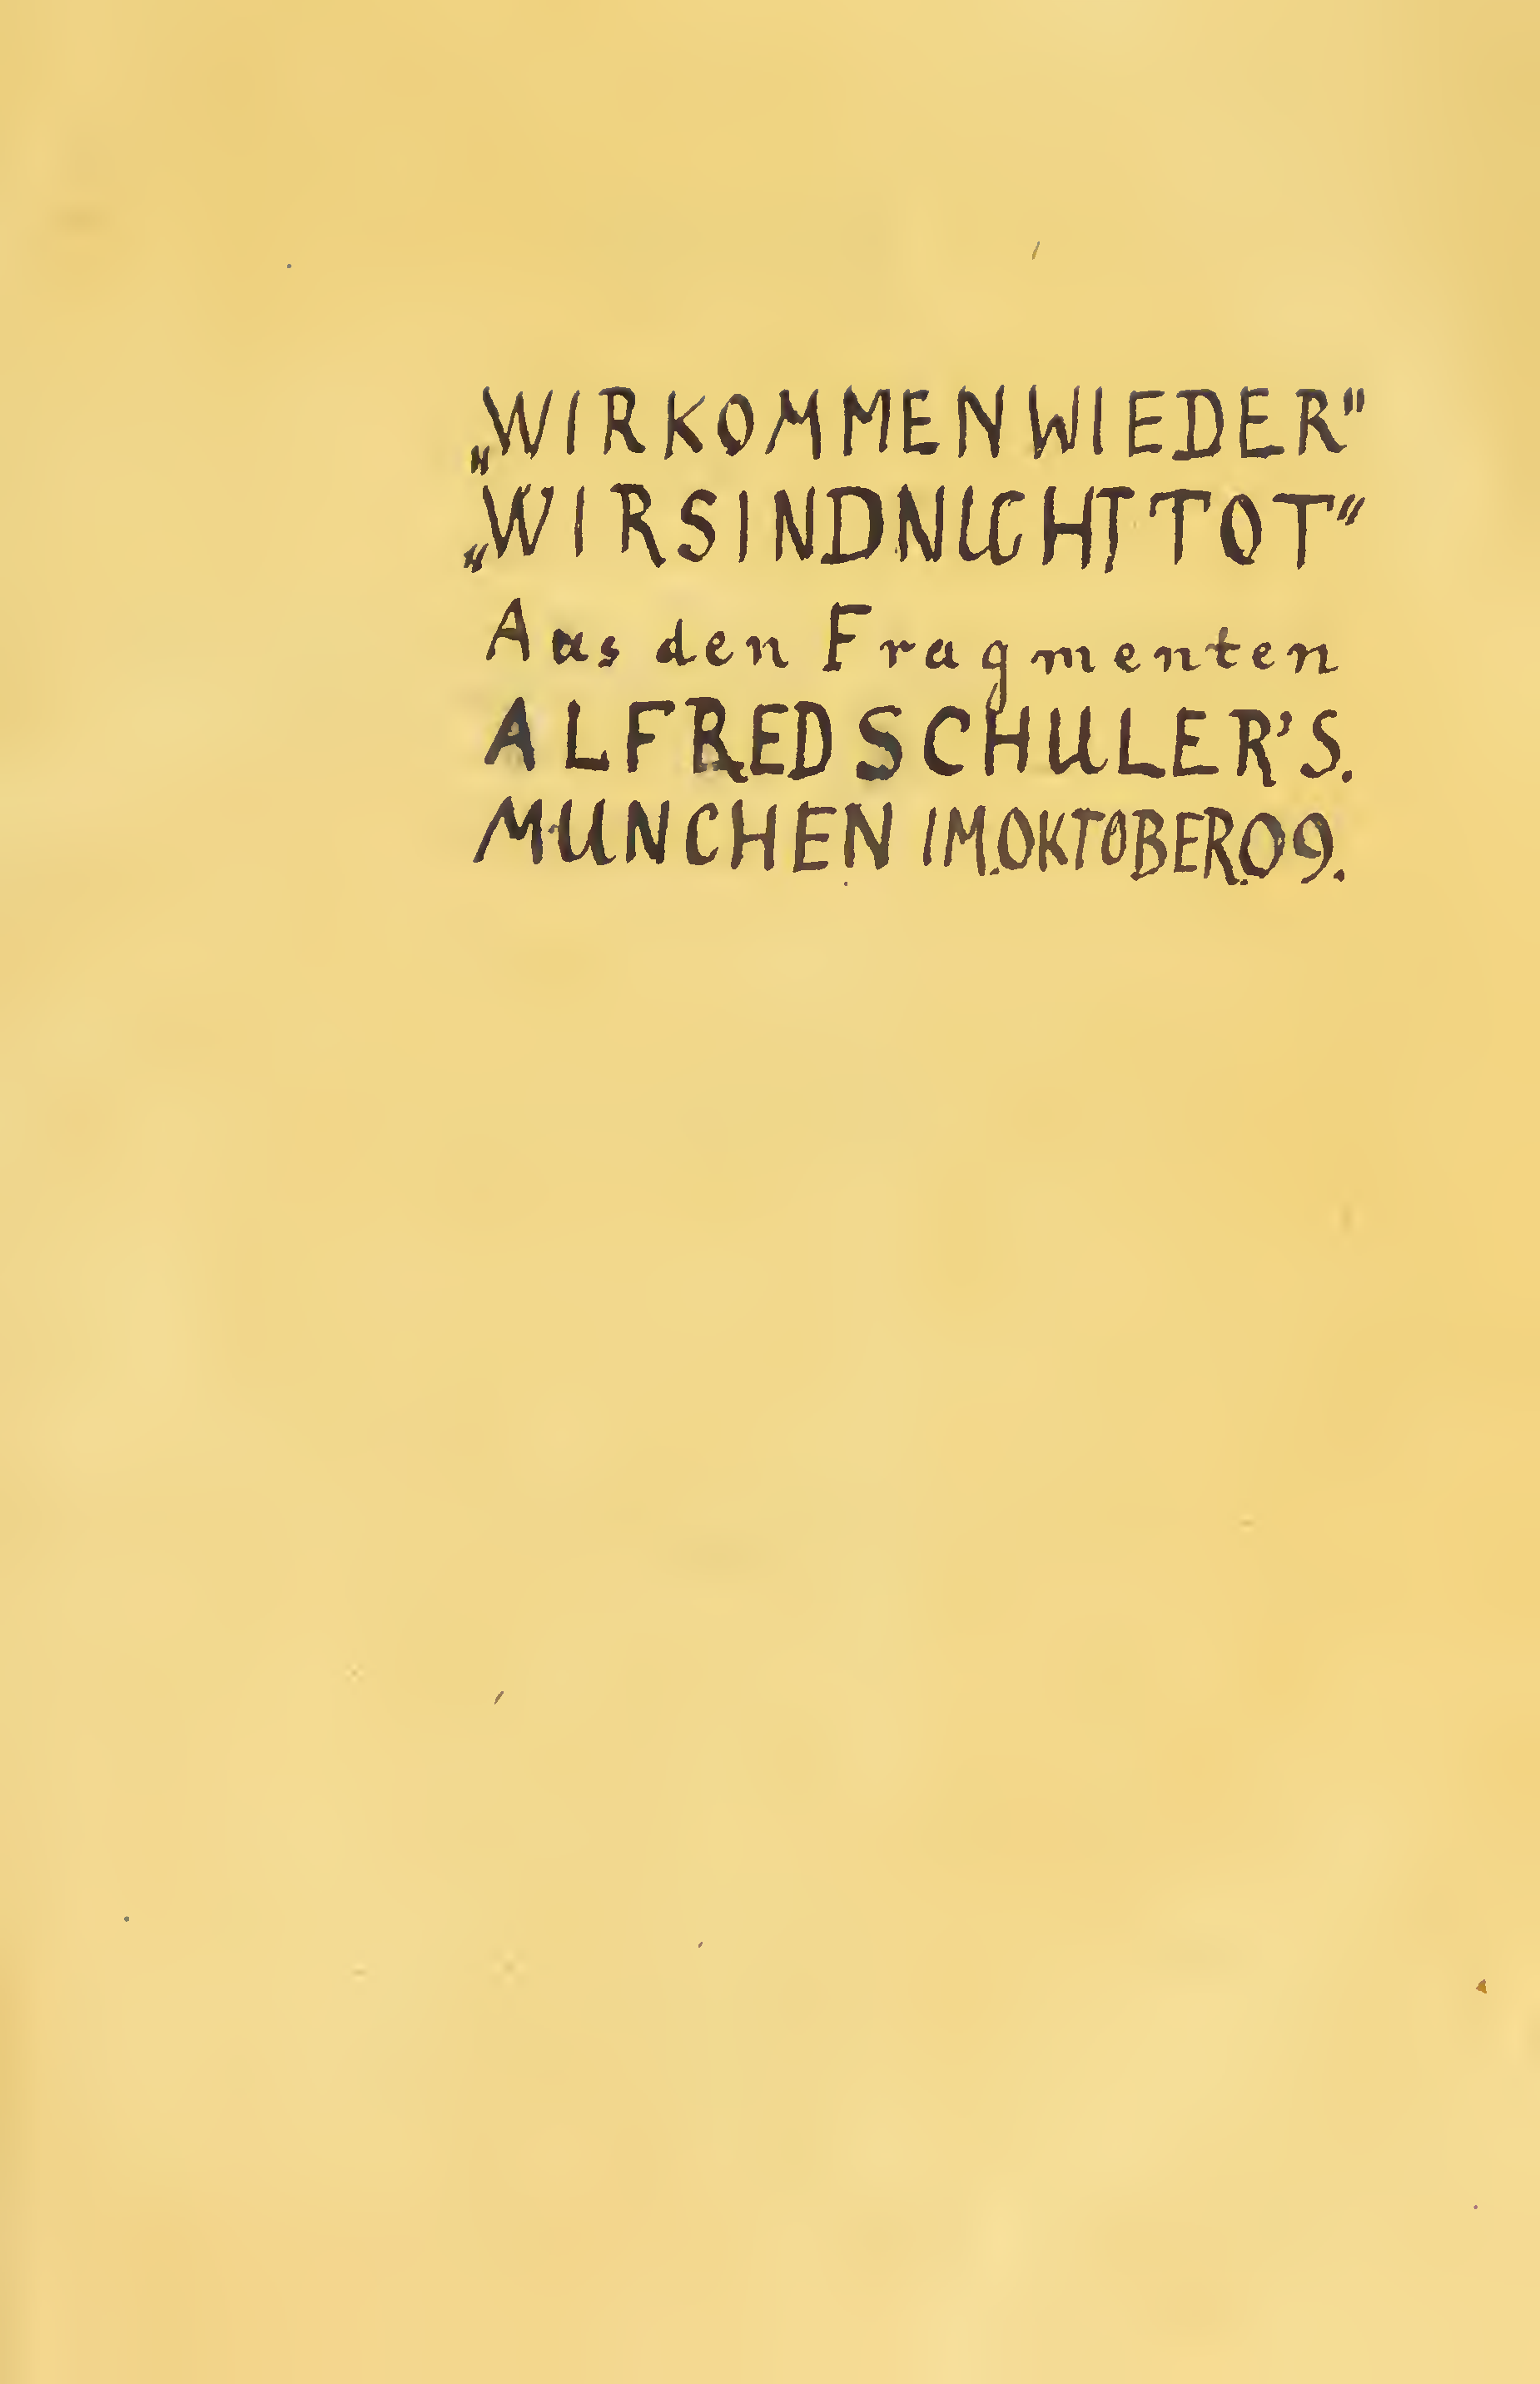 „WIR KOMMEN WIEDER"
„WIR SIND NICHT TOT“
Aus den Fragmenten
ALFRED SCHULER’S.
MUNCHEN IM.OKTOBER.09.